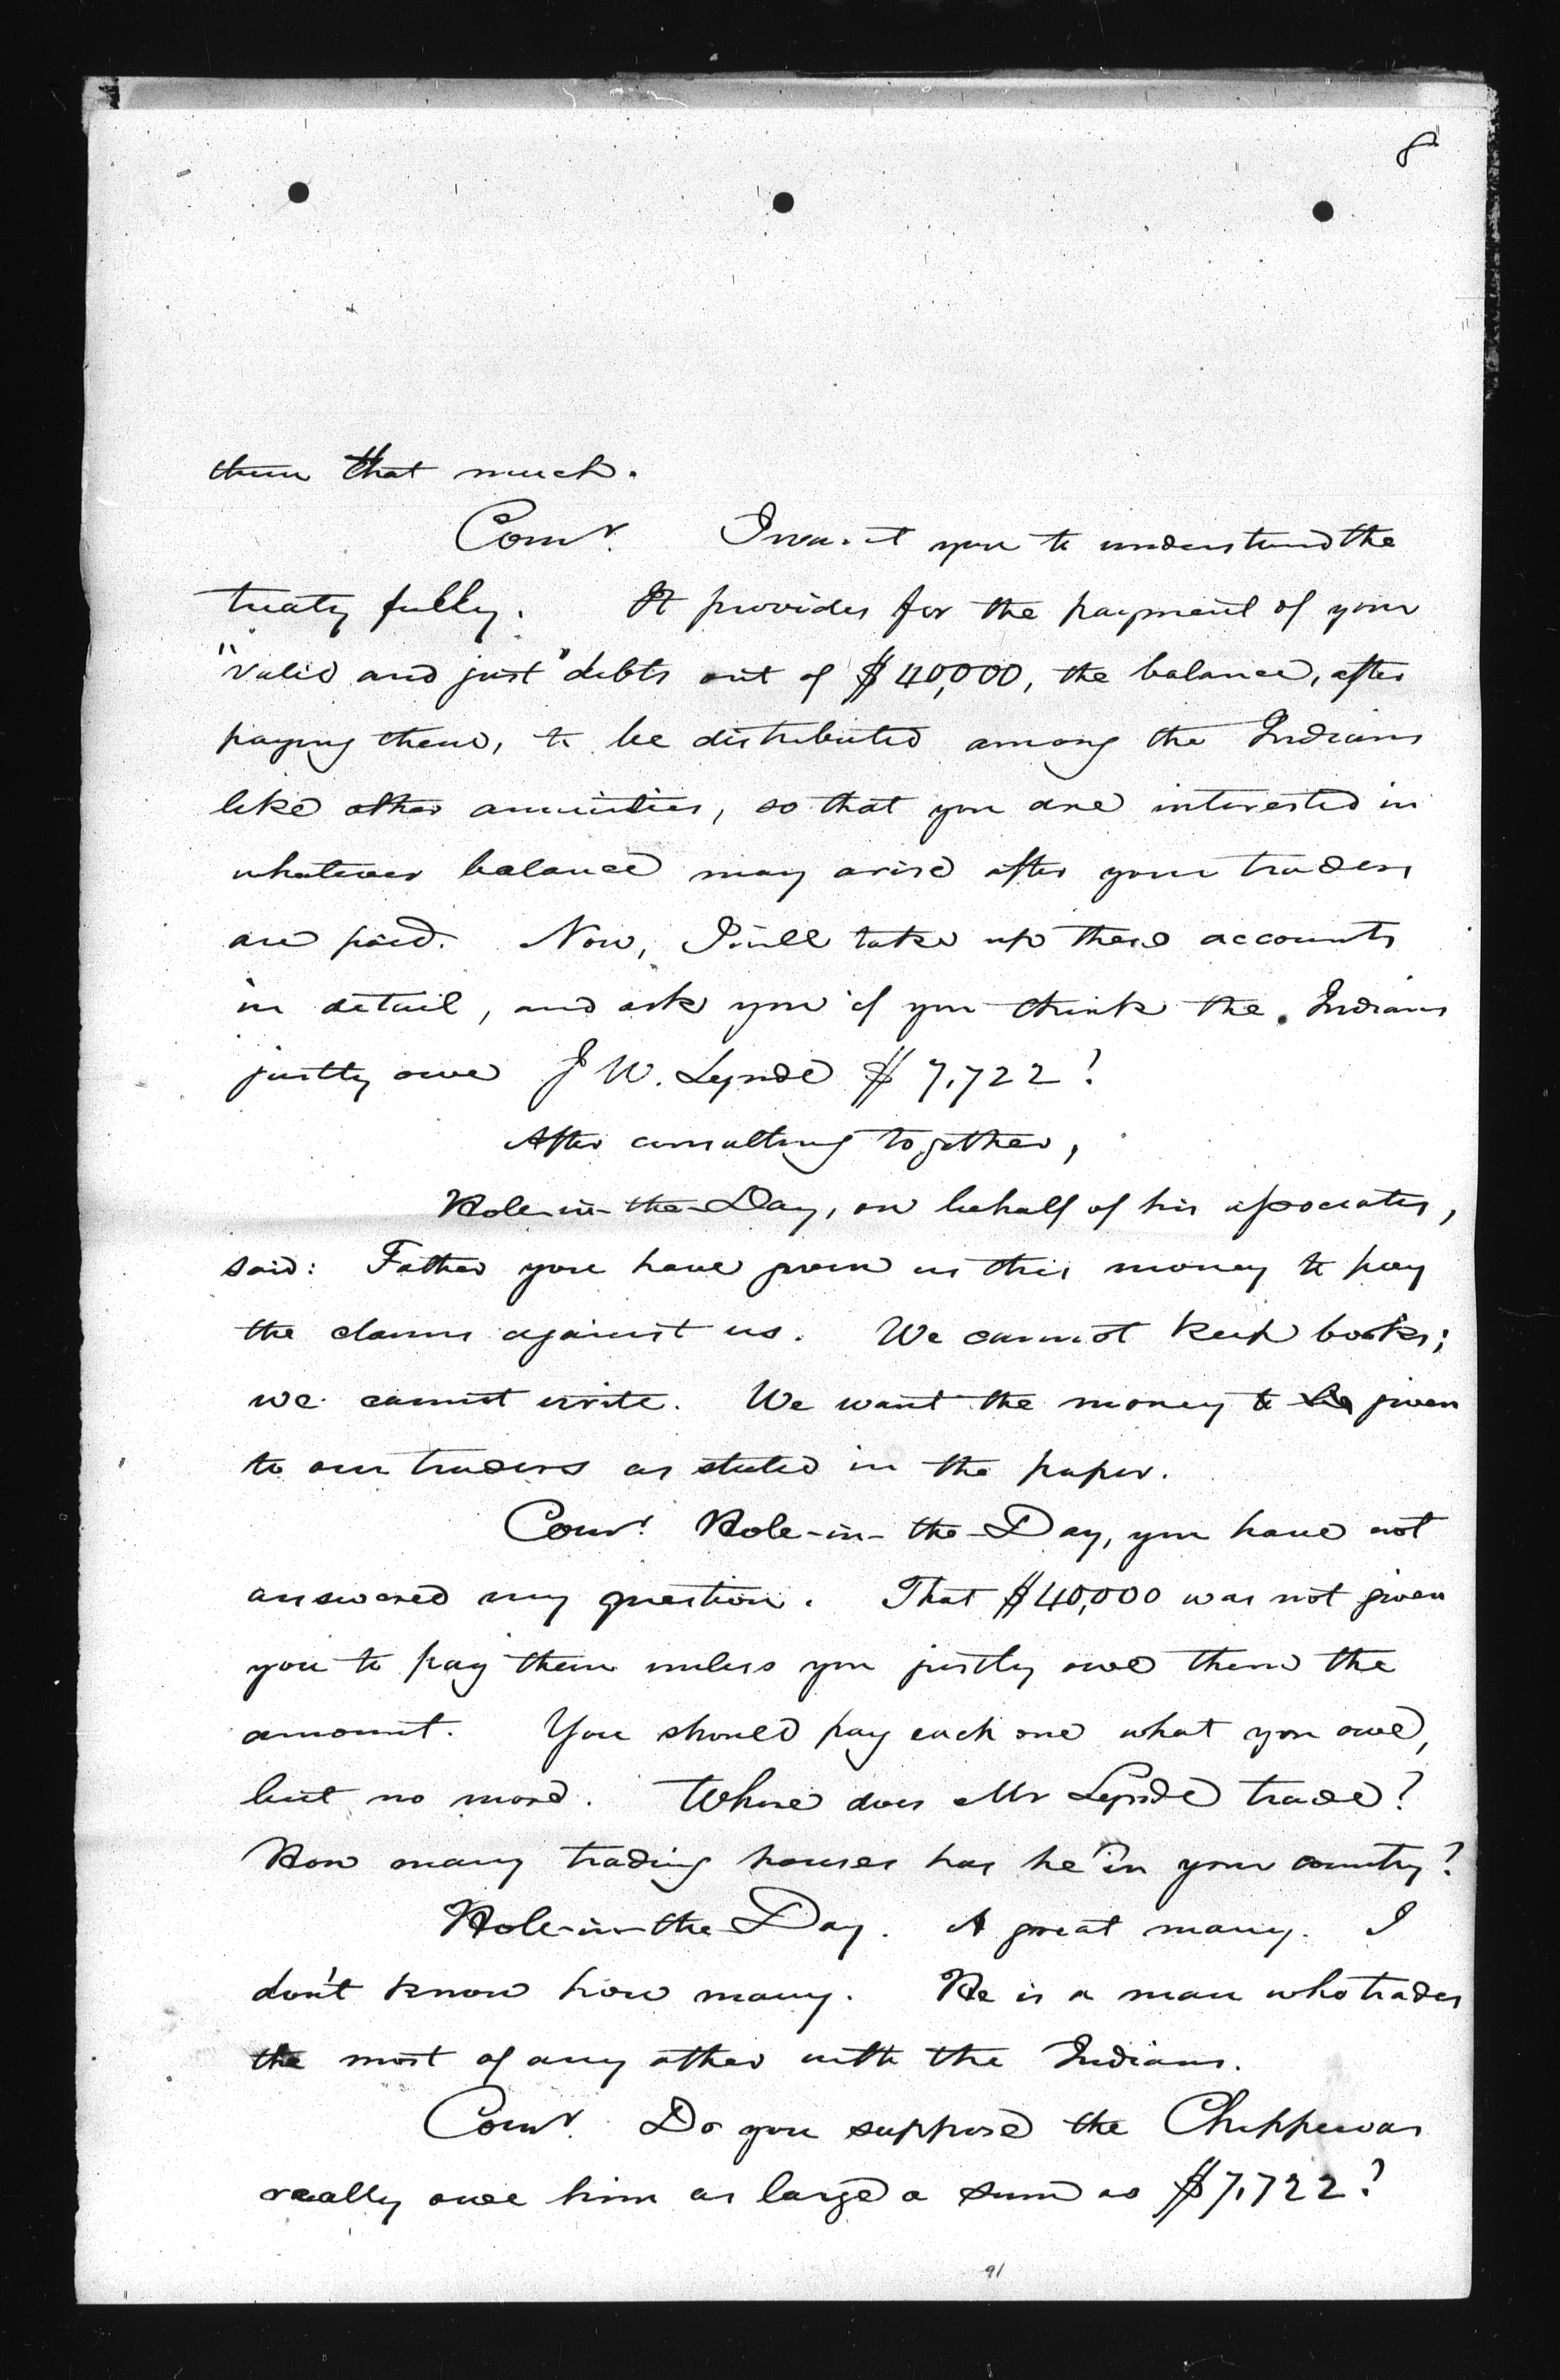 8
them that much.
Comr. I want you to understand the
treaty fully. It provides for the payment of your
"valid and just" debts out of $40,000, the balance, after
paying them, to be distributed among the Indians
like other annuities, so that you are interested in
whatever balance may arise after your traders
are paid. Now, I will take up these accounts
in detail, and ask you if you think the Indians
justly owe J W. Lynde $7,722?
After consulting together,
Hole-in-the-Day, on behalf of his associates,
said: Father you have given us this money to pay
the claims against us. We cannot keep books;
we cannot write. We want the money to be given
to our traders as stated in the paper.
Comr. Hole-in-the-Day, you have not
answered my question. That $40,000 was not given
you to pay them unless you justly owe them the
amount. You should pay each one what you owe,
but no more. Where does Mr Lynde trade?
How many trading houses has he in your country?
Hole-in-the-Day. A great many. I
don't know how many. He is a man who trades
the most of any other with the Indians.
Comr. Do you suppose the Chippewas
really owe him as large a sum as $7,722?
91